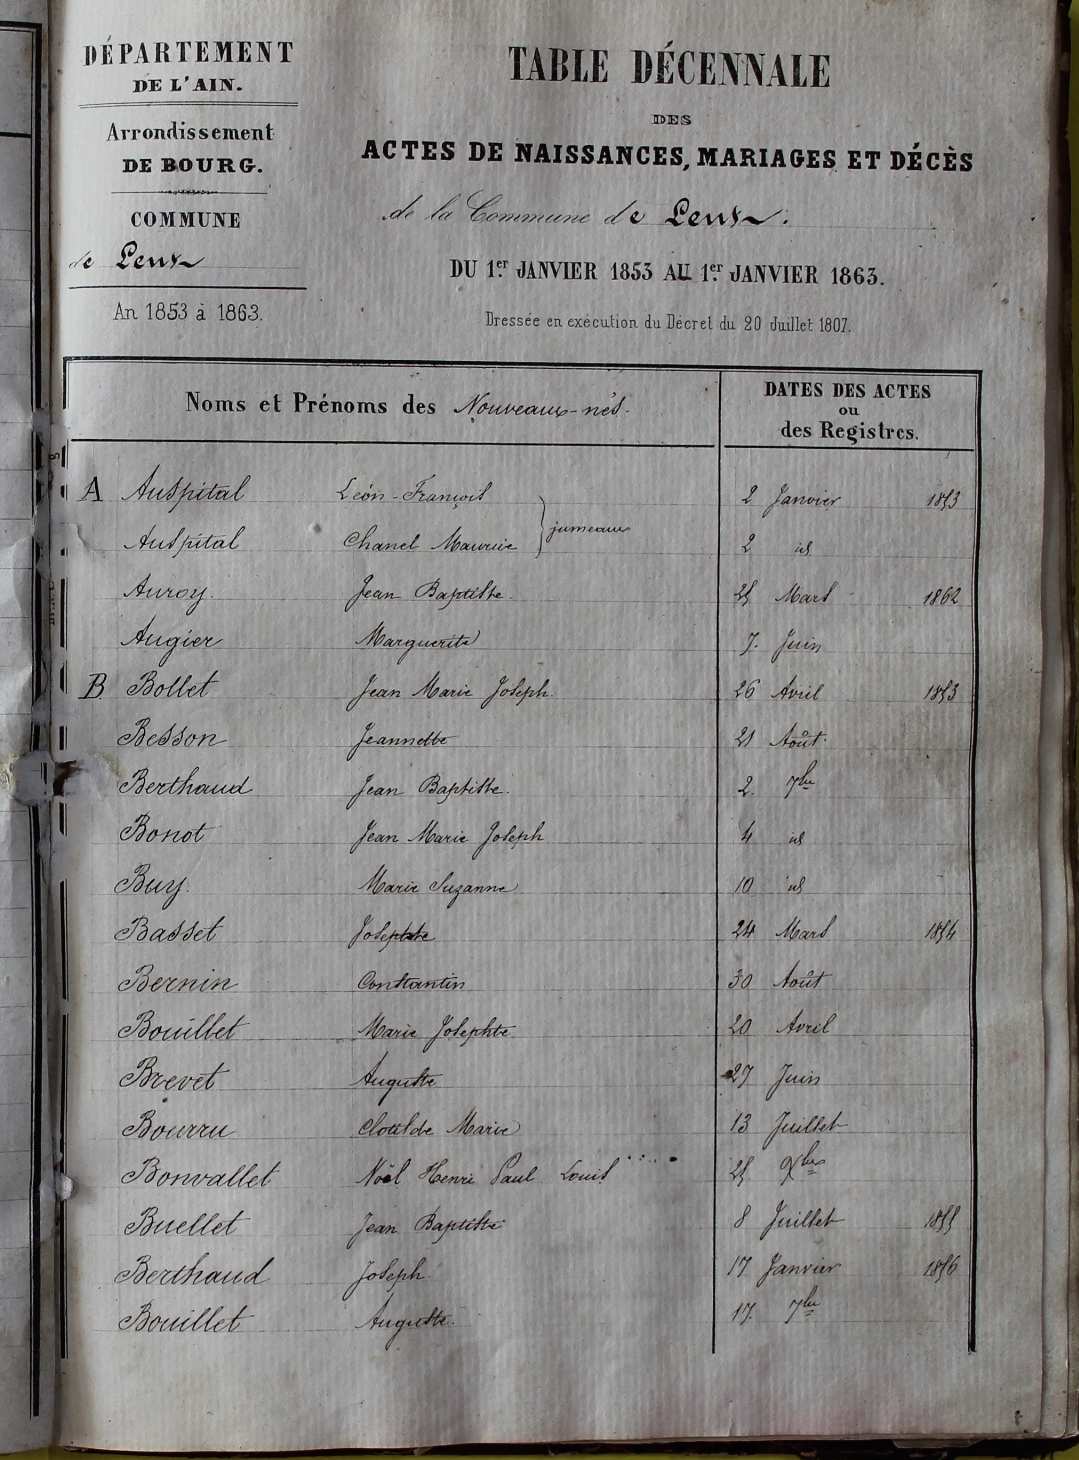 DÉPARTEMENT
DE L'AIN.
Arrondissement
DE BOURG.
COMMUNE
de Leux
An 1853 à 1863.
TABLE DÉCENNALE
DES
ACTES DE NAISSANCES, MARIAGES ET DÉCÈS
de la Commune de Leux.
DU 1er JANVIER 1853 AU 1er JANVIER 1863.
Dressée en exécution du Décret du 20 Juillet 1807.
Noms et Prénoms des Nouveaux-nés.
DATES DES ACTES
ou
des Registres.
A Auspital Léon-François 2 Janvier 1853
jumeaux
Auspital Chanel Maurice 2 id
Auroy. Jean Baptiste. 25 Mars 1862
Augier Marguerite 7. Juin
B Bollet Jean Marie Joseph. 26 Avril 1853
Besson Jeannette 21 Août.
Berthaud Jean Baptiste. 2. 7bre
Bonot Jean Marie Joseph 4 id
Buy. Marie Suzanne 10 id
Basset Josephte 24 Mars 1854
Bernin Constantin 30 Août
Bouillet Marie Josephte 20 Avril
Brevet Auguste 27 Juin
Bourru Clotilde Marie 13 Juillet
Bonvallet Noël Henri Paul Louis 25 Xbre
Buellet Jean Baptiste 8 Juillet 1855
Berthaud Joseph 17 Janvier 1856
Bouillet Auguste. 17. 7bre